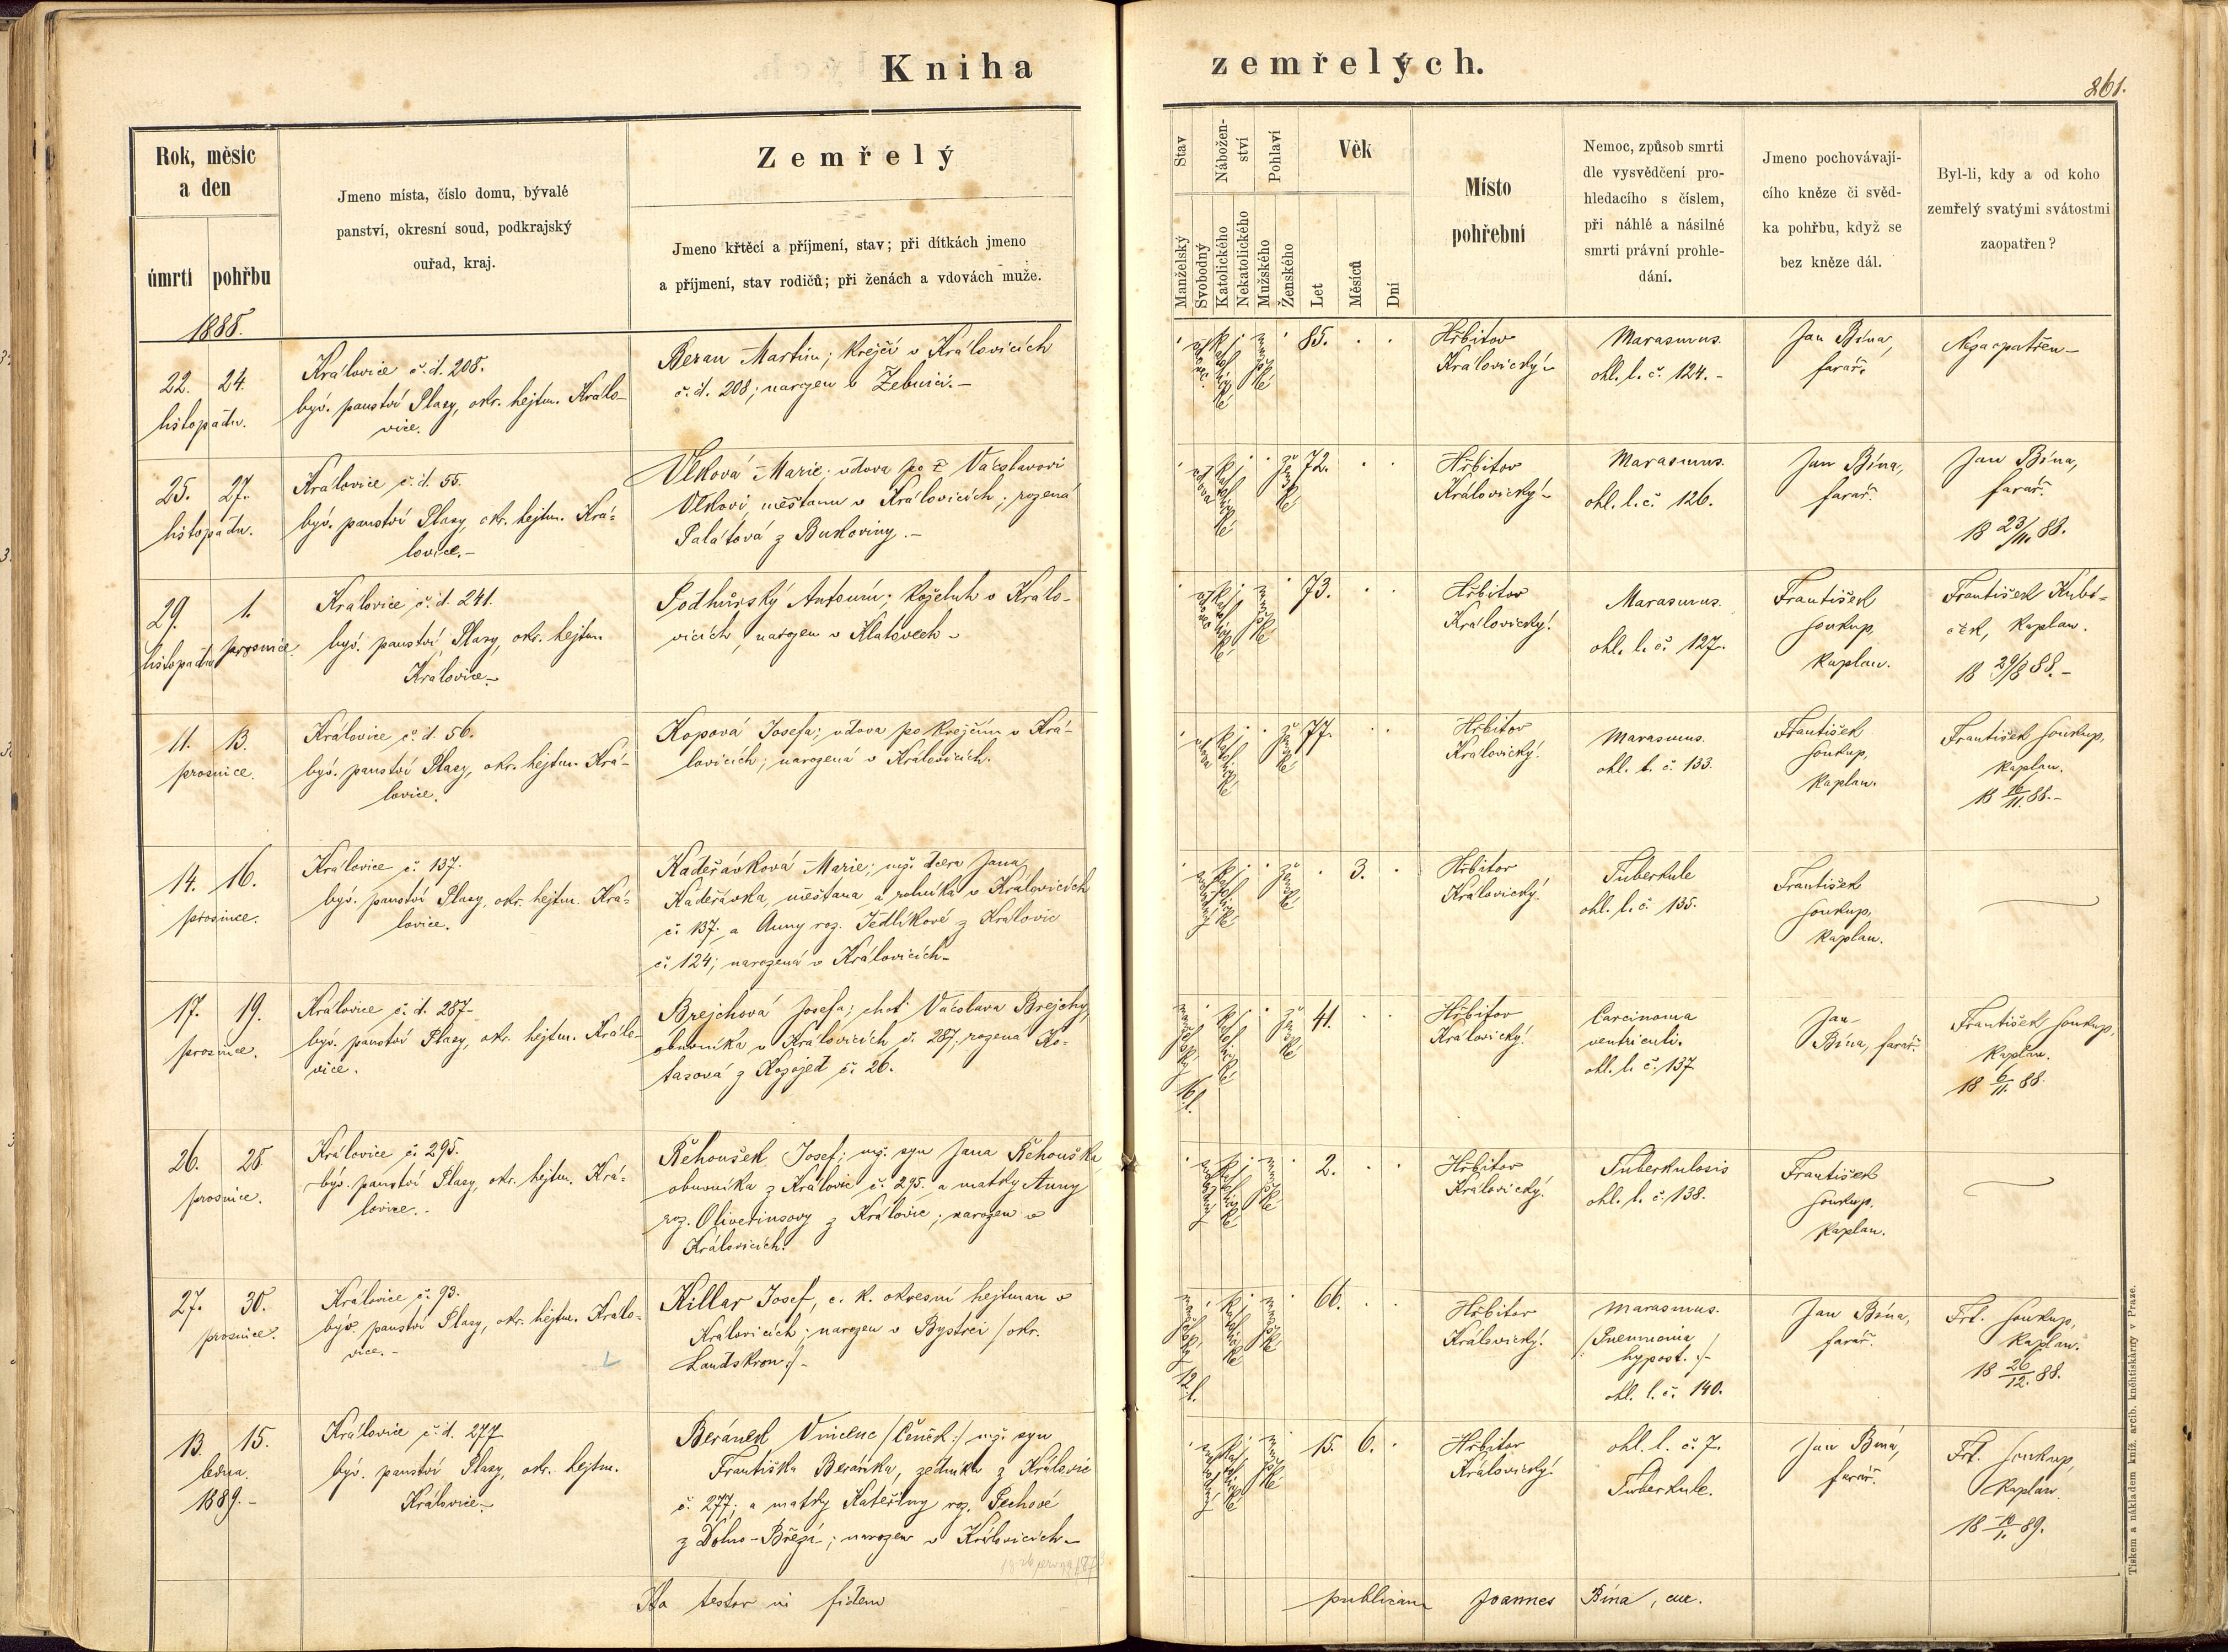 Kniha zemřelých.
261.
Rok, měsíc
a den
úmrtí
pohřbu
Jmeno místa, číslo domu, bývalé
panství, okresní soud, podkrajský
ouřad, kraj.
Zemřelý
Jmeno křtěcí a příjmení, stav; při dítkách jmeno
a příjmení, stav rodičů; při ženách a vdovách muže.
Stav
Manželský
Svobodný
Nábožen-
ství
Katolického
Nekatolického
Pohlaví
Mužského
Ženského
Věk
Let
Měsíců
Dní
Místo
pohřební
Nemoc, způsob smrti
dle vysvědčení pro-
hledacího s číslem,
při náhlé a násilné
smrti právní prohle-
dání.
Jmeno pochovávají-
cího kněze či svěd-
ka pohřbu, když se
bez kněze dál.
Byl-li, kdy a od koho
zemřelý svatými svátostmi
zaopatřen?
1888.
22. 24.
listopadu.
Královice č. d. 208.
býv. panství Plasy, okr. hejtm. Králo-
vice.
Beran Martin; krejčí v Královicích
č. d. 208; narozen v Žebnici.-
85.
Hřbitov
Královický
Marasmus.
ohl. l. č. 124.-
Jan Bína,
farář.
Nezaopatřen-
25. 27.
listopadu.
Královice č. d. 55.
býv. panství Plasy, okr. hejtm. Krá-
lovice.-
Vlková Marie; vdova po Václavovi
Vlkovi, měšťanu v Královicích; rozená
Palátová z Bukoviny.-
vdova
72.
Hřbitov
Královický
Marasmus.
ohl. l. č. 126.
Jan Bína,
farář.
Jan Bína,
farář.
18 23/11. 88.
29. 1.
listopadu prosince.
Královice č. d. 241.
býv. panství Plasy, okr. hejtm.
Královice
Podhůrský Antonín; koželuh v Králo-
vicích, narozen v Klatovech
73.
Hřbitov
Královický.
Marasmus.
ohl. l. č. 127.
František
Soukup,
kaplan.
František Kubí-
ček, kaplan.
18 29/8 88.-
11. 13.
prosince.
Královice č. d. 56.
býv. panství Plasy, okr. hejtm. Krá-
lovice.
Kopová Josefa; vdova po krejčím v Krá-
lovicích; narozená v Královicích.
vdova
77.
Hřbitov
Královický.
Marasmus.
ohl. l. č. 133.
František
Soukup,
kaplan.
František Soukup,
kaplan.
18 16/11. 88.-
14. 16.
prosince.
Královice č. 137.
býv. panství Plasy, okr. hejtm. Krá-
lovice.
Kadeřávková Marie; mž. dcera Jana
Kadeřávka, měšťana a rolníka v Královicích
č. 137. a Anny roz. Jedlíkové z Královic
č. 124; narozená v Královicích-
svobodný
3.
Hřbitov
Královický.
Tuberkule
ohl. l. č. 135.
František
Soukup,
kaplan.
17. 19.
prosince.
Královice č. d. 287-
býv. panství Plasy, okr. hejtm. Králo-
vice.
Brejchová Josefa; choť Václava Brejchy,
obuvníka v Královicích č. 287; rozená Ko-
tasová z Kozojed č. 26.
manželský 16. l.
41.
Hřbitov
Královický.
Carcinoma
ventriculi.
ohl. l. č. 137
Jan
Bína, farář.
František Soukup,
kaplan.
18 6/11. 88.
26. 28.
prosince.
Královice č. 295.
býv. panství Plasy, okr. hejtm. Krá-
lovice.
Řehoušek Josef; mž. syn Jana Řehouška
obuvníka z Královic č. 295. a matky Anny
roz. Oliverinsovy z Královic; narozen v
Královicích.
svobodný
2.
Hřbitov
Královický.
Tuberkulosis
ohl. l. č. 138.
František
Soukup,
kaplan.
27. 30.
prosince.
Královice č. 93.
býv. panství Plasy, okr. hejtm. Králo-
vice.-
Killar Josef, c. k. okresní hejtman v
Královicích; narozen v Bystrci /okr.
Landskron:/-
manželský 12. l.
66.
Hřbitov
Královický.
Marasmus.
/Pneumonia
hypost.:/-
ohl. l. č. 140.
Jan Bína,
farář.
Frt. Soukup,
kaplan.
18 26/12. 88.
13. 15.
ledna.
1889.-
Královice č. d. 277
býv. panství Plasy, okr. hejtm.
Královice-
Beránek Vincenc /Čeněk:/ mž. syn
Františka Beránka, zedníka z Královic
č. 277; a matky Kateřiny roz. Pechové
z Dolno-Březí-; narozen v Královicích-
svobodný
15. 6.
Hřbitov
Královický.
ohl. l. č. 7.
Tuberkule.
Jan Bína,
farář.
Frt. Soukup,
kaplan.
18 10/1. 89.
Ita testor in fidem publicam Joannes Bína, cur.
Tiskem a nákladem kníž. arcib. kněhtiskárny v Praze.